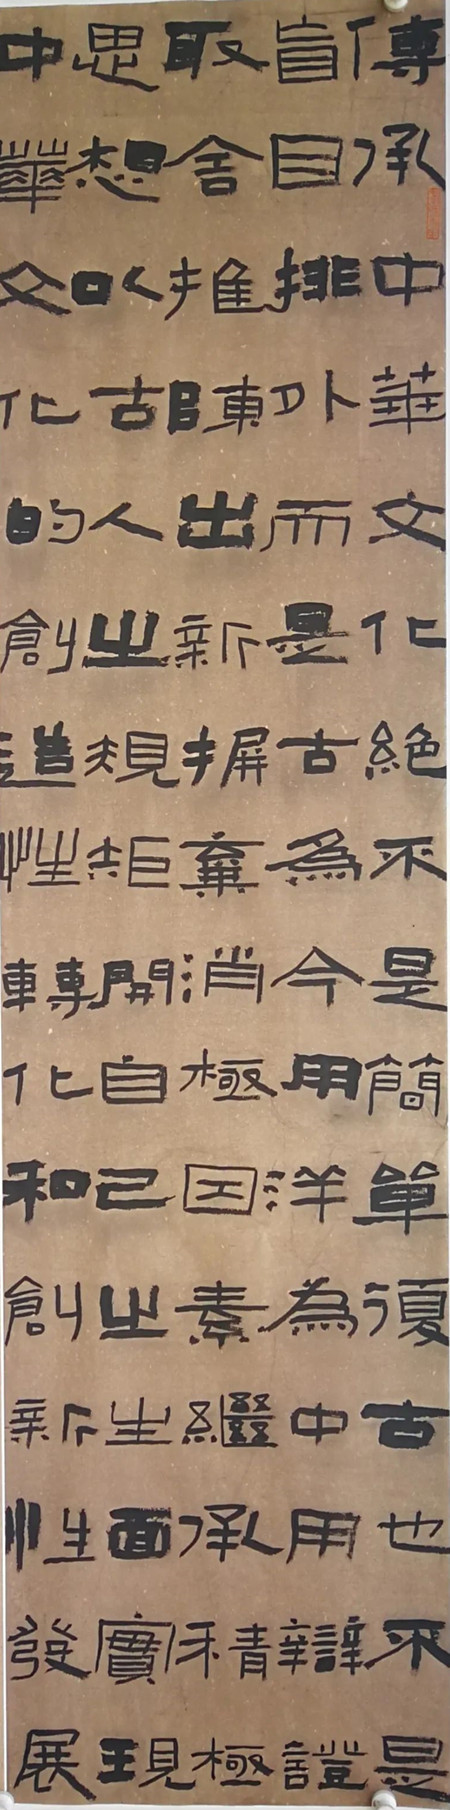 傳承中華文化絶不是簡單復古也不是
盲目排外而是古為今用洋為中用辯證
取舍推陳出新摒棄消極因素繼承積極
思想以古人之規矩開自己之生面實現
中華文化的創造性轉化和創新性發展